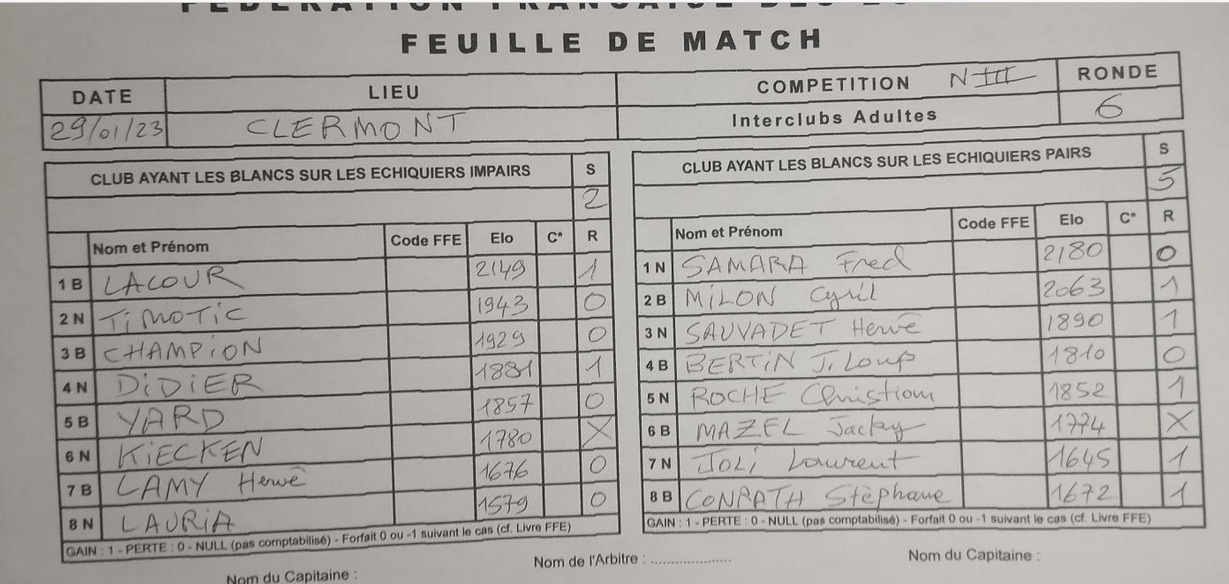 FEDERATION FRANCAISE DES
FEUILLE DE MATCH
DATE LIEU COMPETITION NIII RONDE
29/01/23 CLERMONT Interclubs Adultes 6
CLUB AYANT LES BLANCS SUR LES ECHIQUIERS IMPAIRS S
2
Nom et Prénom Code FFE Elo C* R
1 B LACOUR 2149 1
2 N TiMOTiC 1943 0
3 B CHAMPiON 1929 0
4 N DiDiER 1881 1
5 B YARD 1857 0
6 N KiECKEN 1780 X
7 B LAMY Hervé 1676 0
8 N LAURiA 1579 0
GAIN : 1 - PERTE : 0 - NULL (pas comptabilisé) - Forfait 0 ou -1 suivant le cas (cf. Livre FFE)
Nom du Capitaine :
CLUB AYANT LES BLANCS SUR LES ECHIQUIERS PAIRS S
5
Nom et Prénom Code FFE Elo C* R
1 N SAMARA Fred 2180 0
2 B MiLON Cyril 2063 1
3 N SAUVADET Hervé 1890 1
4 B BERTiN J. Loup 1810 0
5 N ROCHE Christian 1852 1
6 B MAZEL Jacky 1774 X
7 N JOLi Laurent 1645 1
8 B CONRATH Stéphane 1672 1
GAIN : 1 - PERTE : 0 - NULL (pas comptabilisé) - Forfait 0 ou -1 suivant le cas (cf. Livre FFE)
Nom de l'Arbitre : ....................
Nom du Capitaine :